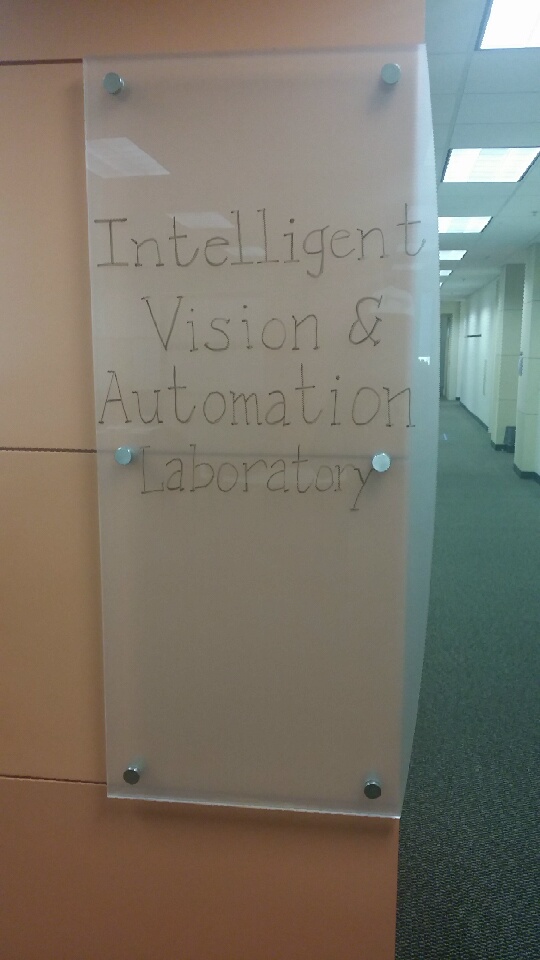 Intelligent
Vision &
Automation
Laboratory